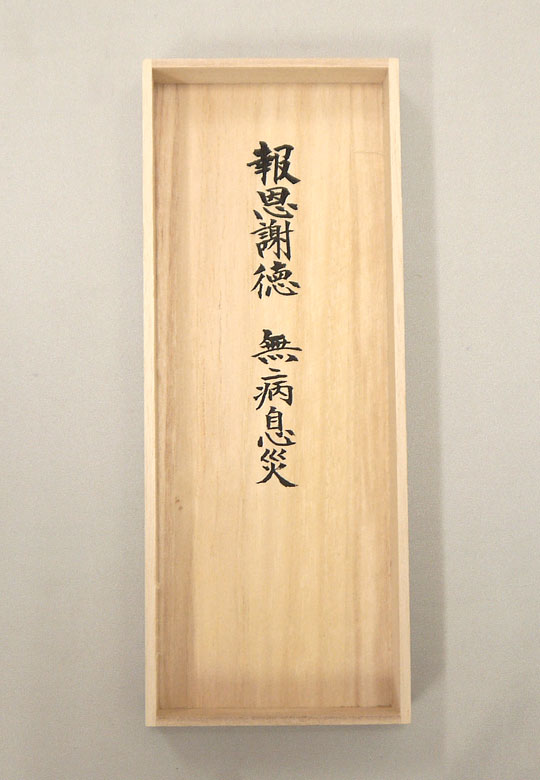 報恩謝徳　無病息災